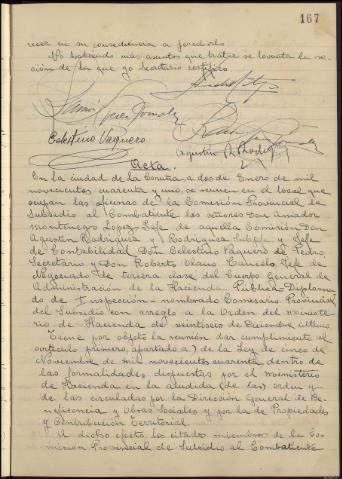 167
recer en su consecuencia a percibirlo
No habiendo más asuntos que tratar se levanta la se-
sión de la que yo Secretario certifico
Celestino Vaquero
Agustín Rodríguez
Acta.
En la ciudad de la Coruña a dos de Enero de mil
novecientos cuarenta y uno, se reunen en el local que
ocupan las oficinas de la Comisión Provincial de
Subsidio al Combatiente los señores Don Amador
Montenegro López, Jefe de aquella Comisión Don
Agustín Rodríguez y Rodríguez Subjefe y Jefe
de Contabilidad, Don Celestino Vaquero de Pedro,
Secretario y Don Roberto Blanco Jefe de
Negociado de tercera clase del Cuerpo General de
Administración de la Hacienda Pública Diploma-
do de inspección nombrado Comisario Provincial
del Subsidio con arreglo a la Orden del Ministe-
rio de Hacienda de veintiocho de Diciembre último
Tiene por objeto la reunión dar cumplimiento al
artículo primero, apartado a) de la Ley de cinco de
Noviembre de mil novecientos cuarenta dentro de
las formalidades dispuestas por el Ministerio
de Hacienda en la aludida (de las) orden y
de las circuladas por la Dirección General de Be-
neficencia y Obras Sociales y por la de Propiedades
y Contribución Territorial.
A dicho efecto los citados miembros de la Co-
misión Provincial de Subsidio al Combatiente